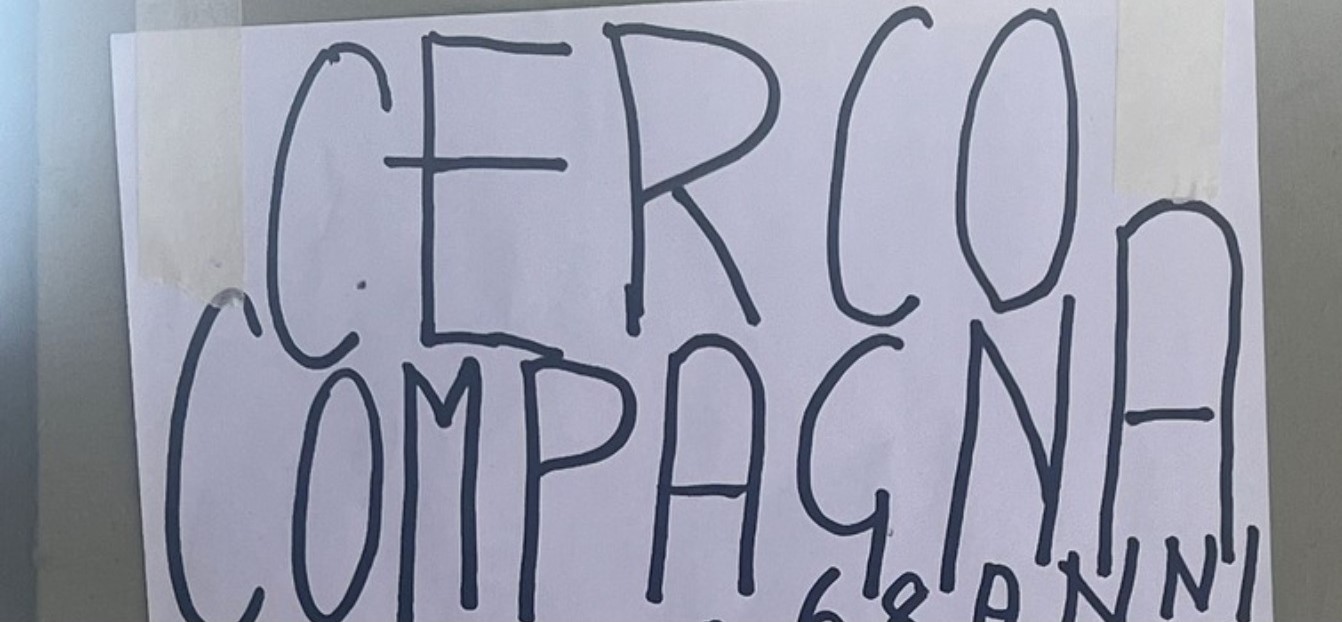 CERCO
COMPAGNA
68 ANNI